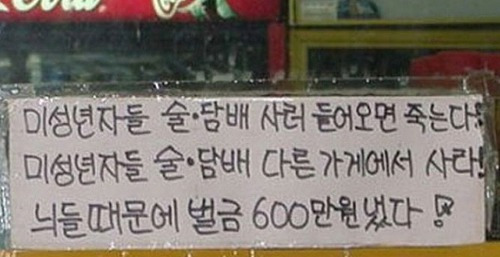 미성년자들 술·담배 사러 들어오면 죽는다!
미성년자들 술·담배 다른 가게에서 사라!
늬들 때문에 벌금 600만원 냈다!